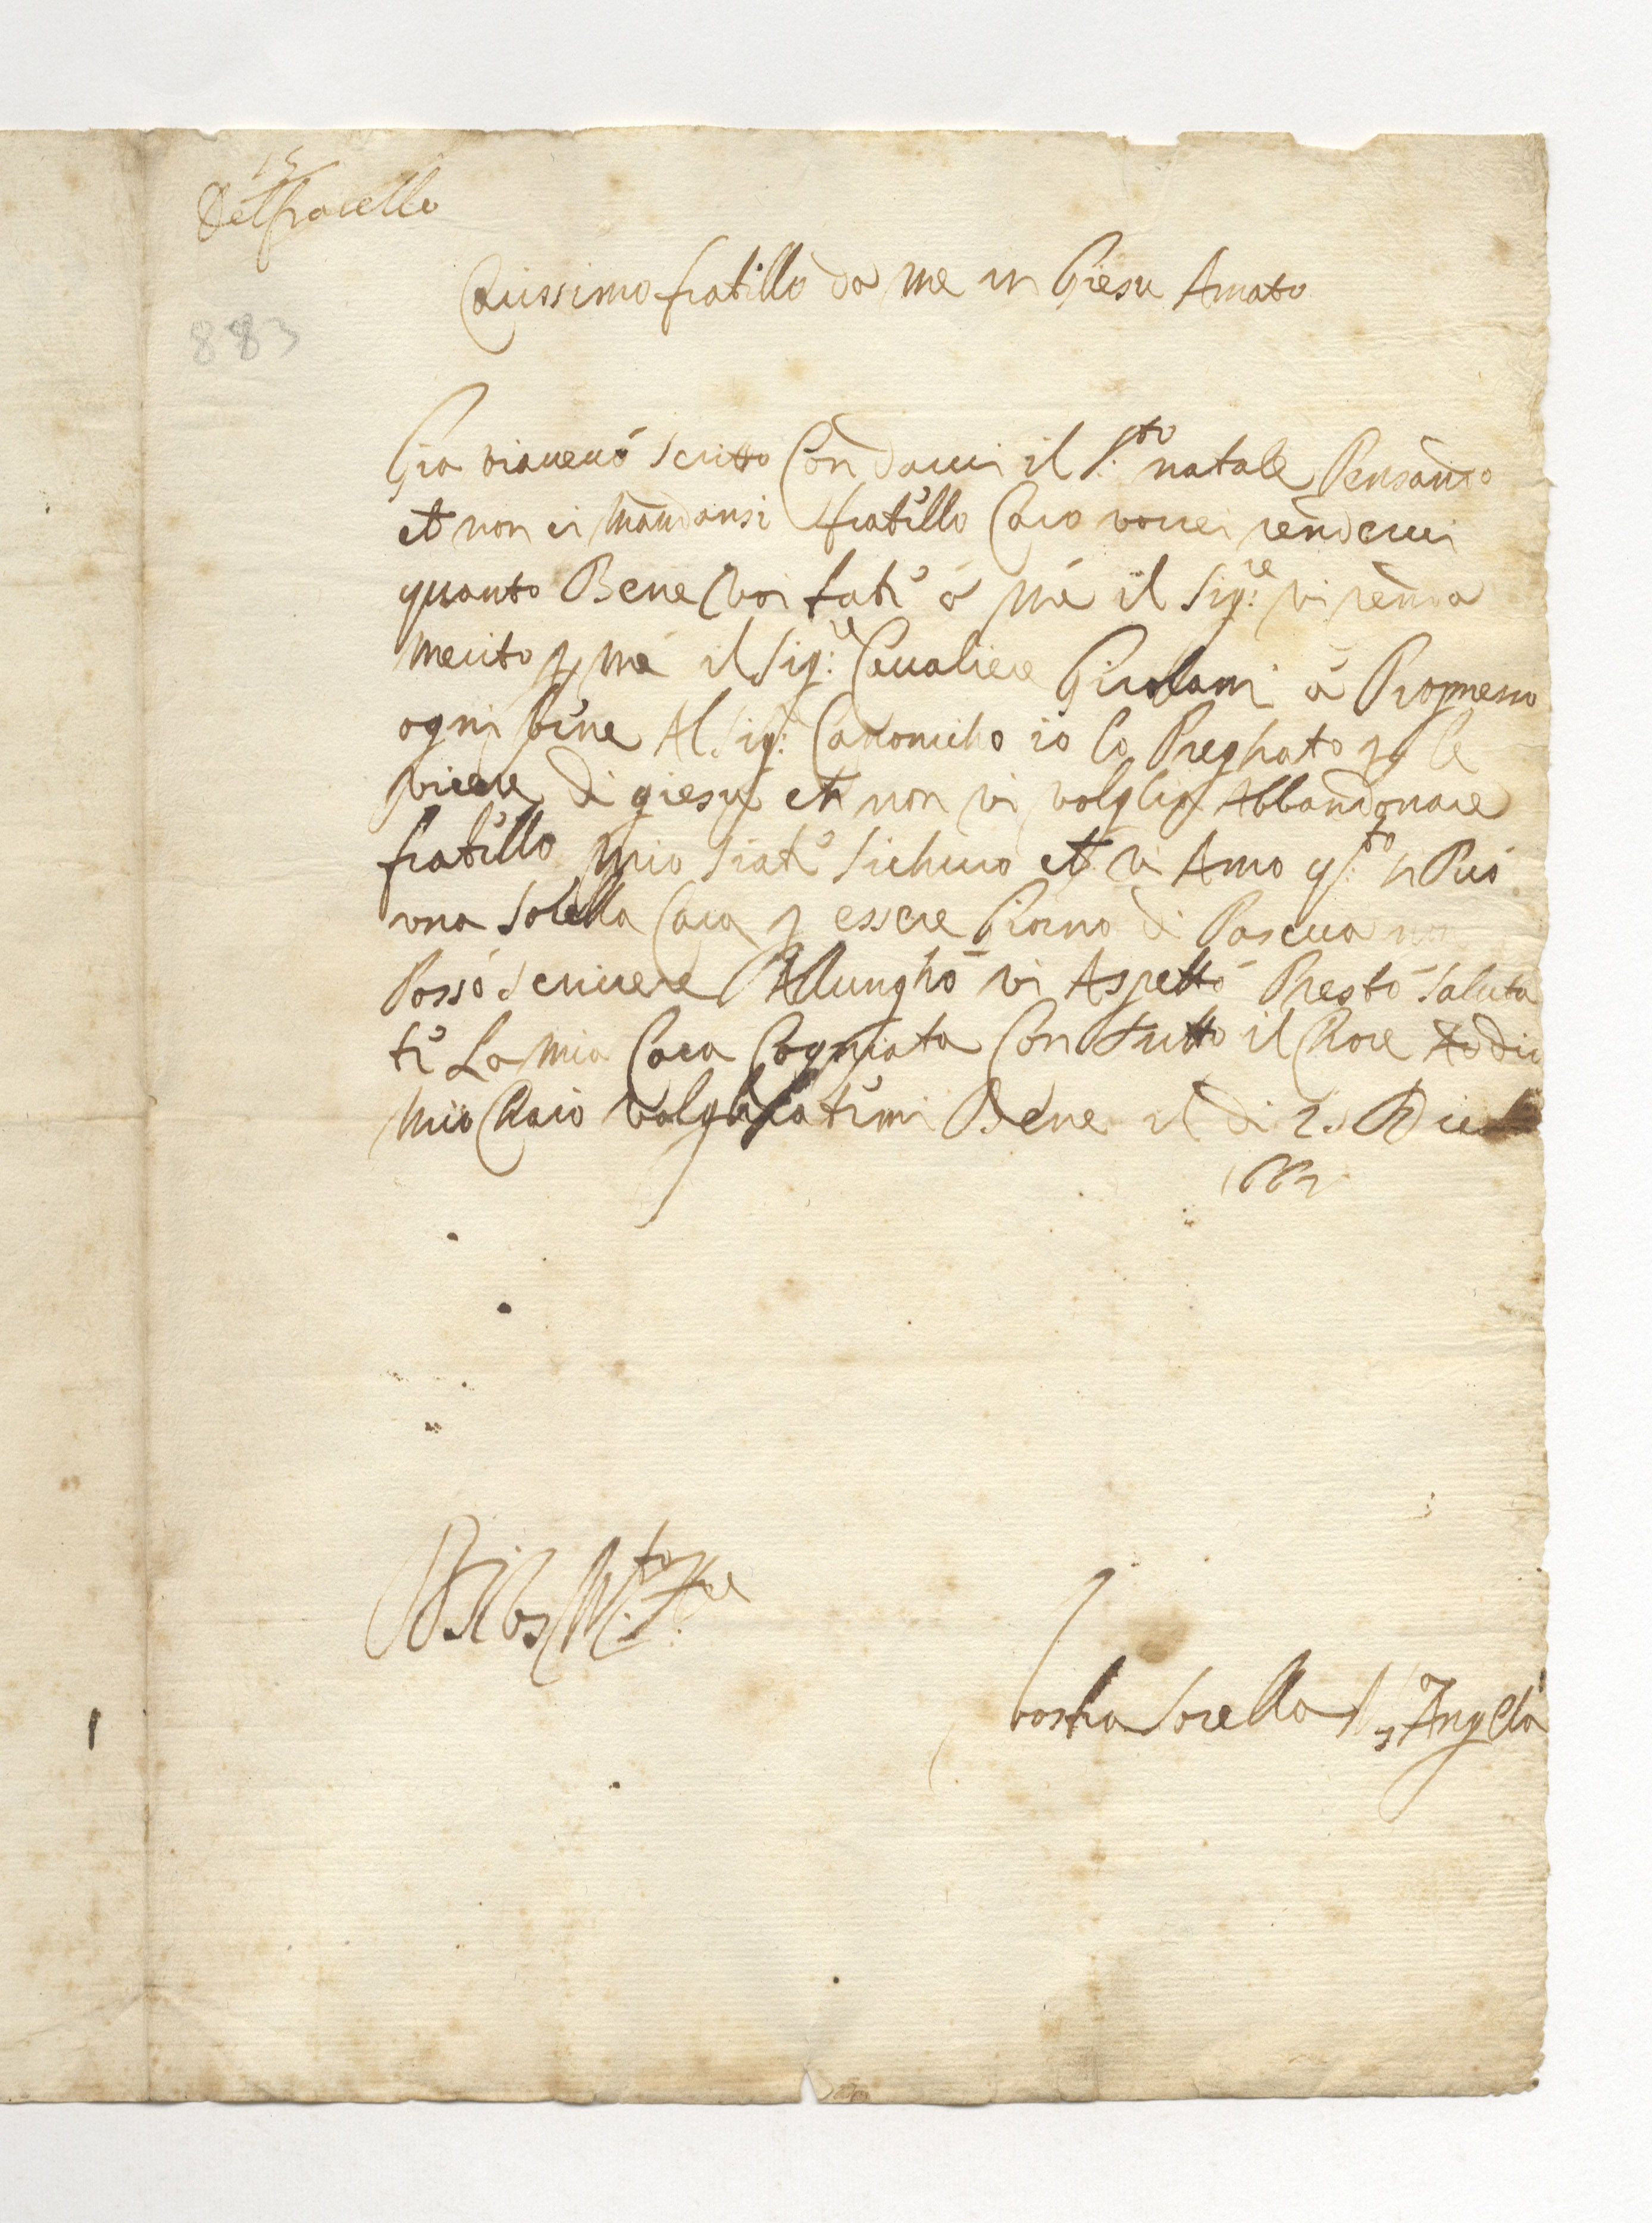 15
Del fratello
883
Carissimo fratillo da me in Giesu Amato
Gia viaueuo scritto Con darui il S.to natale Pensando
et non ci mandansi fratillo Caro vorrei renderui
quanto Bene voi fati à me il Sig.re vi renda
merito p me il Sig.re Caualiere Girolami à Promesso
ogni bine Al Sig: Canonicho io lo Preghato p le
vicere di giesu et non vi volglia Abbandonare
fratillo mio siati sichuro et vi Amo q.to si Puo
una sorella Cara p essere Giorno di Pascua non
Posso scriuere Allungho vi Aspetto Presto Saluta
ti La mia Cara Cogniata Con tutto il Chore Addio
mio Charo volgliatimi Bene il di 2. Dice
vostra sorella Angela